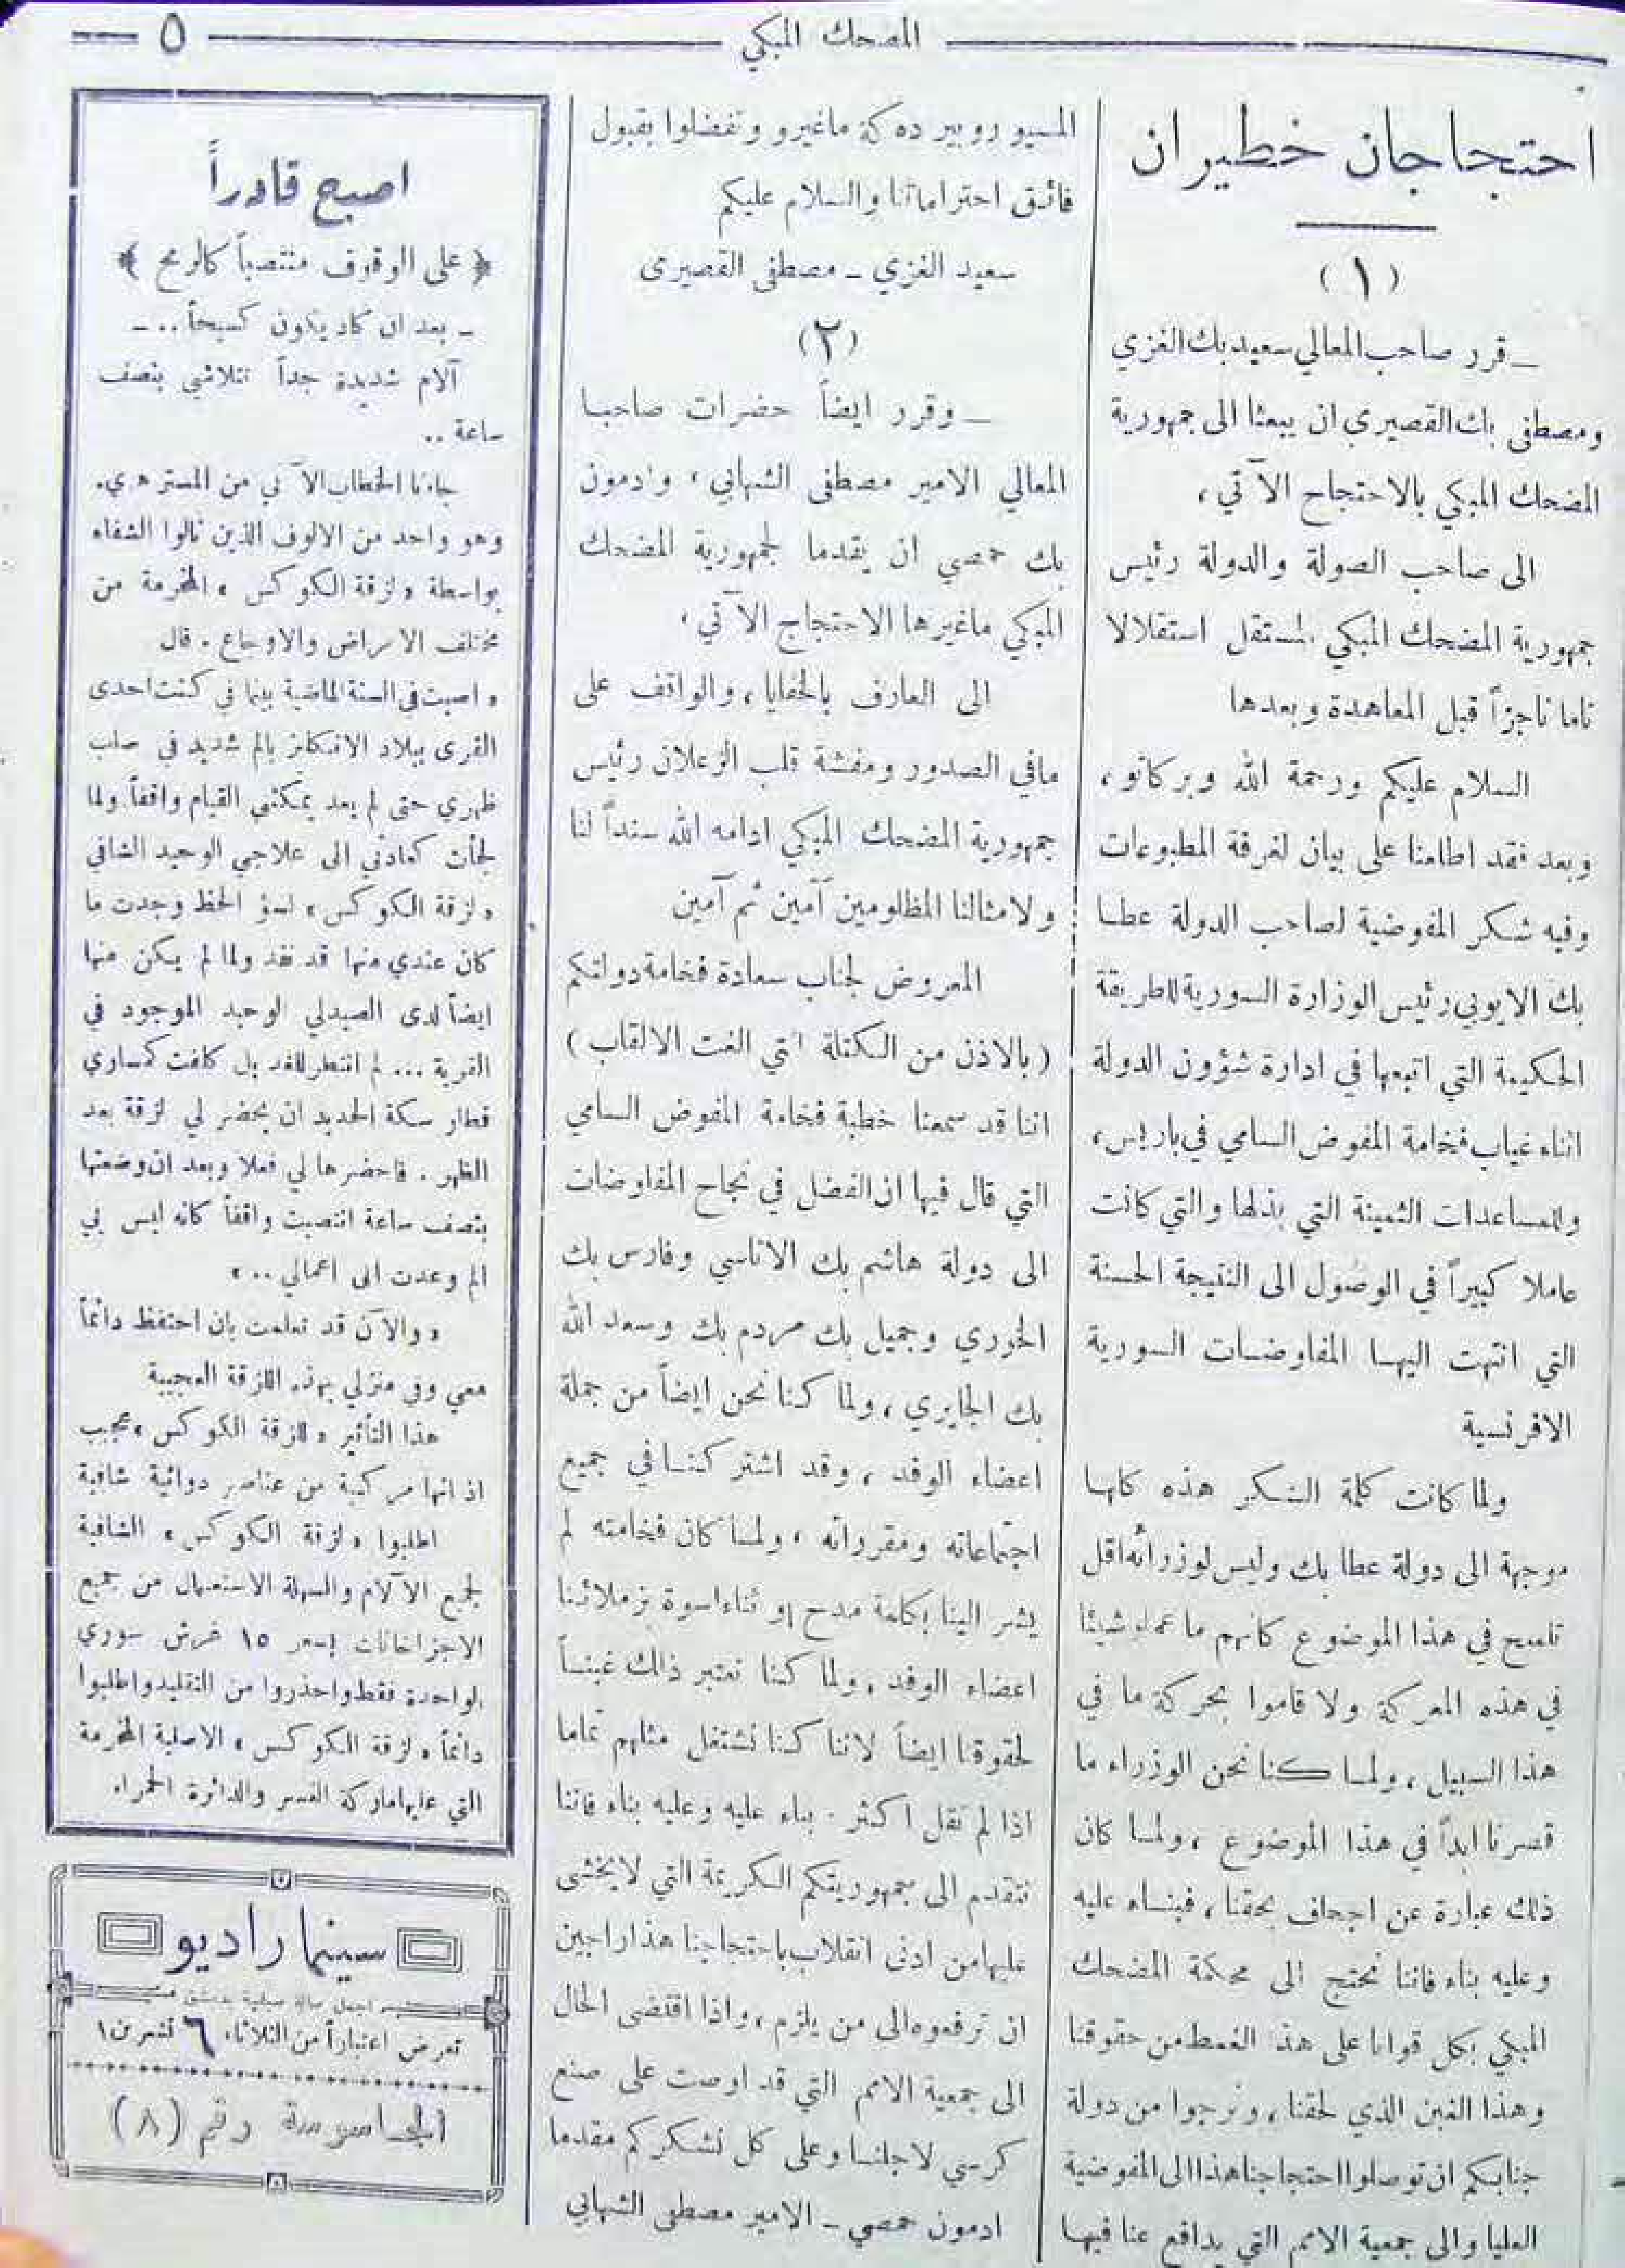 المضحك المبكي
٥
احتجاجان خطيران
(١)
ـ قرر صاحب المعالي سعيد بك الغزي
ومصطفى بك القصيري ان يبعثا الى جمهورية
المضحك المبكي بالاحتجاج الآتي ،
الى صاحب الصولة والدولة رئيس
جمهورية المضحك المبكي المستقل استقلالا
تاما ناجزاً قبل المعاهدة وبعدها
السلام عليكم ورحمة الله وبركاتو ،
وبعد فقد اطلعنا على بيان لغرفة المطبوعات
وفيه شكر المفوضية لصاحب الدولة عطا
بك الايوبي رئيس الوزارة السورية للطريقة
الحكيمة التي اتبعها في ادارة شؤون الدولة
اثناء غياب فخامة المفوض السامي في باريس ،
وللمساعدات الثمينة التي بذلها والتي كانت
عاملا كبيراً في الوصول الى النتيجة الحسنة
التي انتهت اليها المفاوضات السورية
الافرنسية
ولما كانت كلمة الشكر هذه كلها
موجهة الى دولة عطا بك وليس لوزرائه اقل
تلميح في هذا الموضوع كأنهم ما عملو شيئا
في هذه المعركة ولا قاموا بحركة ما في
هذا السبيل ، ولما كنا نحن الوزراء ما
قصرنا ابداً في هذا الموضوع ، ولما كان
ذلك عبارة عن اجحاف بحقنا ، فبناء عليه
وعليه بناء فاننا نحتج الى محكمة المضحك
المبكي بكل قوانا على هذا الغمط من حقوقنا
وهذا الغبن الذي لحقنا ، ونرجوا من دولة
جنابكم ان توصلوا احتجاجنا هذا الى المفوضية
العليا والى جمعية الامم التي يدافع عنا فيها
المسيو روبير ده كة ماغيرو وتفضلوا بقبول
فائق احتراماتنا والسلام عليكم
سعيد الغزي ـ مصطفى القصيري
(٢)
ـ وقرر ايضاً حضرات صاحبا
المعالي الامير مصطفى الشهابي ، وادمون
بك حمصي ان يقدما لجمهورية المضحك
المبكي ماغيرها الاحتجاج الآتي ،
الى العارف بالخفايا ، والواقف على
مافي الصدور ومفشة قلب الزعلان رئيس
جمهورية المضحك المبكي ادامه الله سنداً لنا
ولامثالنا المظلومين آمين ثم آمين
المعروض لجناب سعادة فخامة دولتكم
( بالاذن من الكتلة التي الغت الالقاب )
اننا قد سمعنا خطبة فخامة المفوض السامي
التي قال فيها ان الفضل في نجاح المفاوضات
الى دولة هاشم بك الاتاسي وفارس بك
الخوري وجميل بك مردم بك وسعد الله
بك الجابري ، ولما كنا نحن ايضاً من جملة
اعضاء الوفد ، وقد اشتركنا في جميع
اجتماعاته ومقرراته ، ولما كان فخامته لم
يشر الينا بكلمة مدح او ثناء اسوة بزملائنا
اعضاء الوفد ، ولما كنا نعتبر ذلك غبنساً
لحقوقنا ايضاً لاننا كنا نشتغل مثلهم تماما
اذا لم نقل اكثر . بناء عليه وعليه بناء فاننا
نتقدم الى جمهوريتكم الكريمة التي لا يخشى
عليها من ادنى انقلاب باحتجاجنا هذا راجين
ان ترفعوه الى من يلزم ، واذا اقتضى الحال
الى جمعية الامم التي قد اوصت على صنع
كرسي لاجلنا وعلى كل نشكركم مقدما
ادمون حمصي ـ الامير مصطفى الشهابي
اصبح قادراً
﴿ على الوقوف منتصباً كالرمح ﴾
ـ بعد ان كاد يكون كسيحاً .. ـ
آلام شديدة جداً تتلاشى بنصف
ساعة ..
جاءنا الخطاب الآتي من المستر ه.ي.
وهو واحد من الالوف الذين نالوا الشفاء
بواسطة « لزقة الكوكس » المخرمة من
مختلف الامراض والاوجاع . قال
« اصبت في السنة الماضية بينما في كنت احدى
القرى ببلاد الانكليز بالم شديد في صلب
ظهري حتى لم يعد يمكنني القيام واقفاً ولما
لجأت كعادتي الى علاجي الوحيد الشافي
« لزقة الكوكس » لسؤ الحظ وجدت ما
كان عندي منها قد نفد ولما لم يكن منها
ايضاً لدى الصيدلي الوحيد الموجود في
القرية ... لم انتظر للغد بل كلفت كمساري
قطار سكة الحديد ان يحضر لي لزقة بعد
الظهر . فاحضرها لي فعلا وبعد ان وضعتها
بنصف ساعة انتصبت واقفاً كانه ليس بي
الم وعدت الى اعمالي .. »
« والآن قد تعلمت بان احتفظ دائماً
معي وفي منزلي بهذه اللزقة العجيبة
هذا التأثير « للزقة الكوكس » عجيب
اذ انها مركبة من عناصر دوائية شافية
اطلبوا « لزقة الكوكس » الشافية
لجميع الآلام والسهلة الاستعمال من جميع
الاجزاخانات بسعر ١٥ غرش سوري
لواحدة فقط واحذروا من التقليد واطلبوا
دائماً « لزقة الكوكس » الاصلية المخرمة
التي عليها ماركة النسر والدائرة الحمراء
سينما راديو
اجمل صالة صيفية بدمشق
تعرض اعتباراً من الثلاثاء ٦ تشرين ١
الجاسوسة رقم (٨)